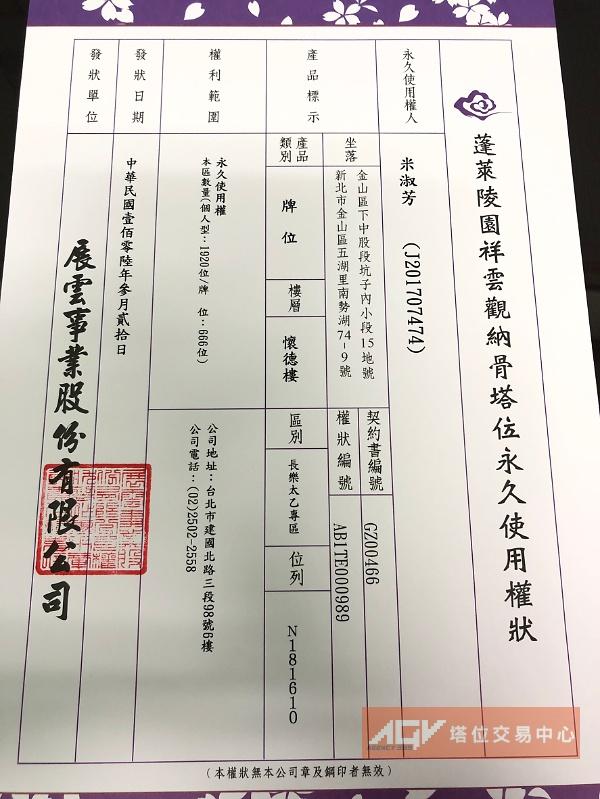 蓬萊陵園祥雲觀納骨塔位永久使用權狀
永久使用權人
米淑芳 (J201707474)
產品標示
坐落
金山區下中股段坑子內小段15地號
新北市金山區五湖里南勢湖74-9號
契約書編號
GZ00466
權狀編號
AB1TE000989
產品類別
牌位
樓層
懷德樓
區別
長樂太乙專區
位列
N181610
權利範圍
永久使用權
本區數量(個人型:1920位/牌 位:666位)
公司地址:台北市建國北路三段98號6樓
公司電話:(02)2502-2558
發狀日期
中華民國壹佰零陸年參月貳拾日
發狀單位
展雲事業股份有限公司
(本權狀無本公司章及鋼印者無效)
AGV 塔位交易中心